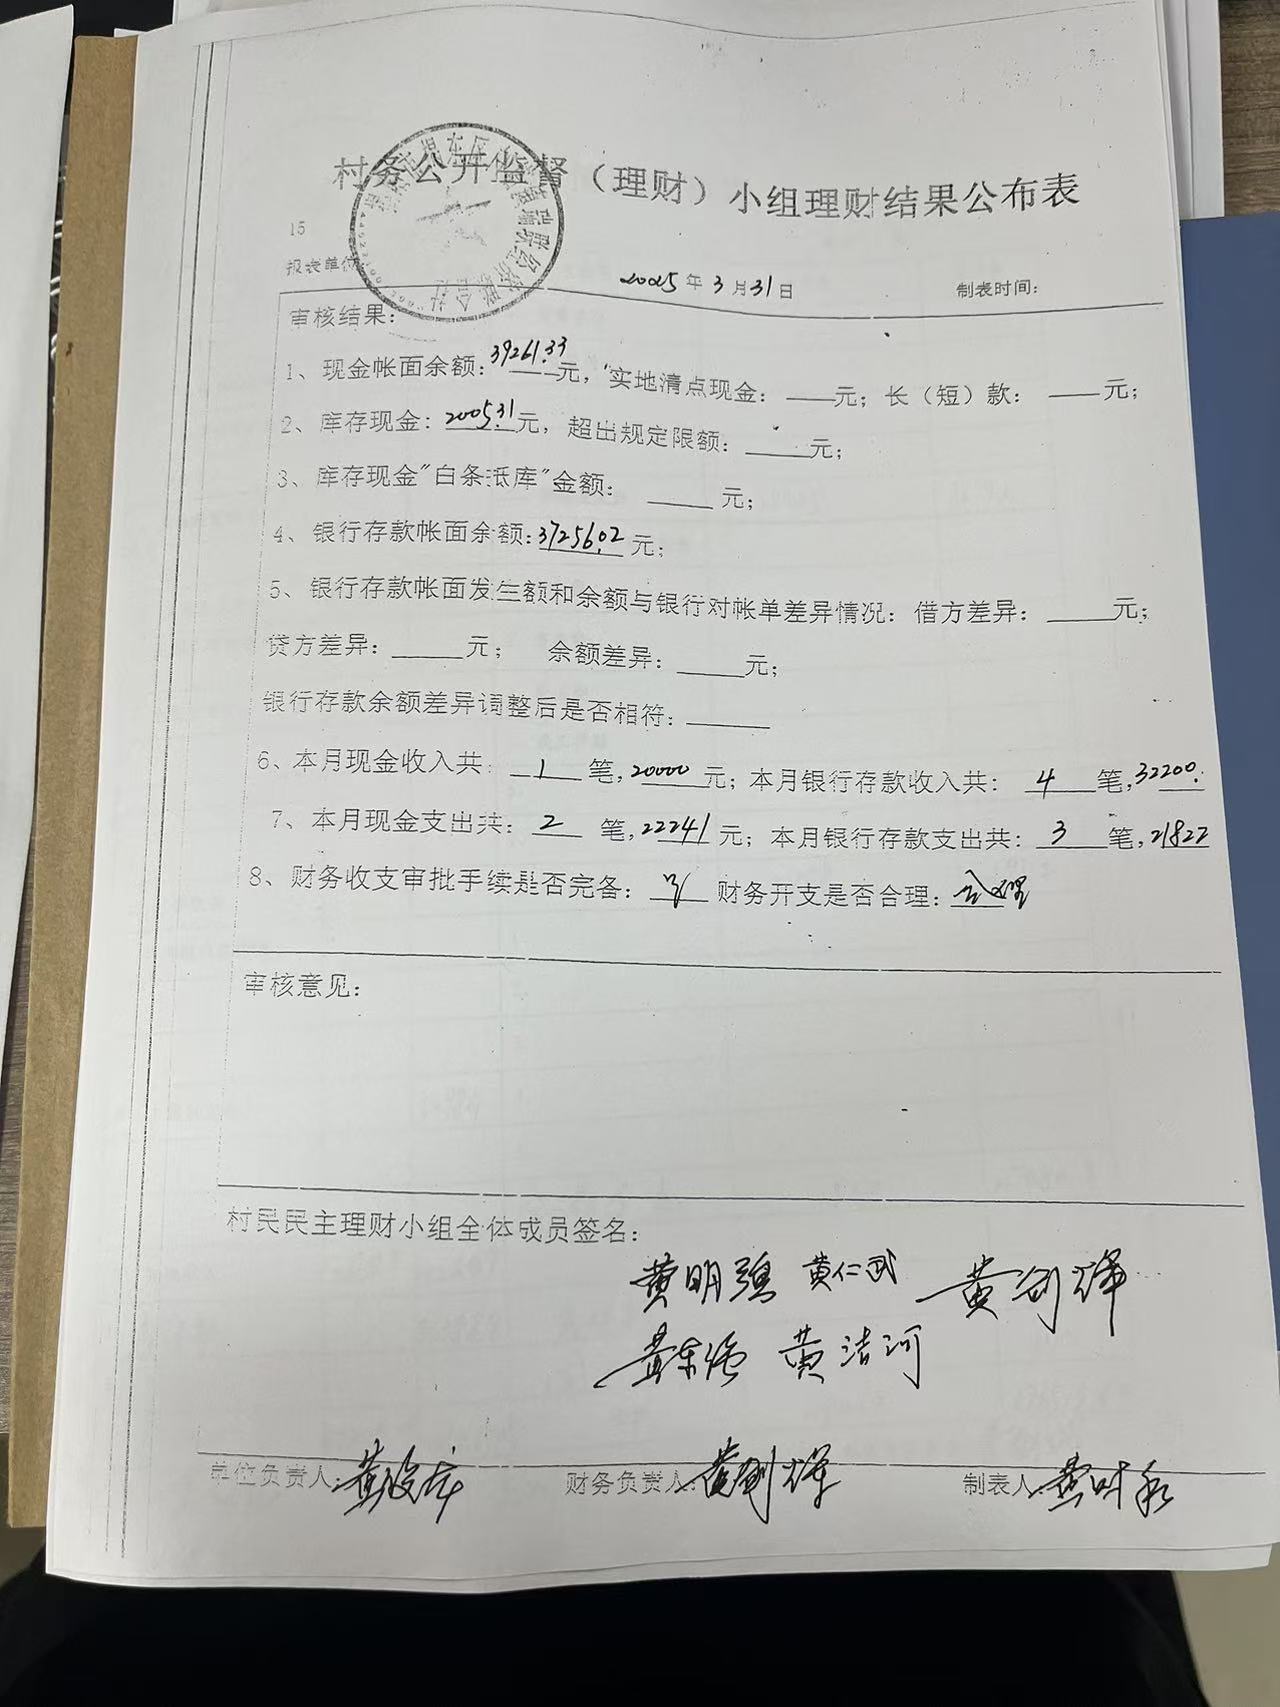 村务公开监督（理财）小组理财结果公布表
15
报表单位
2025年3月31日
制表时间：
审核结果：
1、现金帐面余额：39261.33元，实地清点现金：元；长（短）款：元；
2、库存现金：2005.31元，超出规定限额：元；
3、库存现金"白条抵库"金额：元；
4、银行存款帐面余额：37256.02元；
5、银行存款帐面发生额和余额与银行对帐单差异情况：借方差异：元；
贷方差异：元；余额差异：元；
银行存款余额差异调整后是否相符：
6、本月现金收入共：1笔，20000元；本月银行存款收入共：4笔，32200.
7、本月现金支出共：2笔，22241元；本月银行存款支出共：3笔，21822
8、财务收支审批手续是否完备：财务开支是否合理：合理
审核意见：
村民民主理财小组全体成员签名：
黄明强 黄仁武
黄洁河
单位负责人：
财务负责人：
制表人：